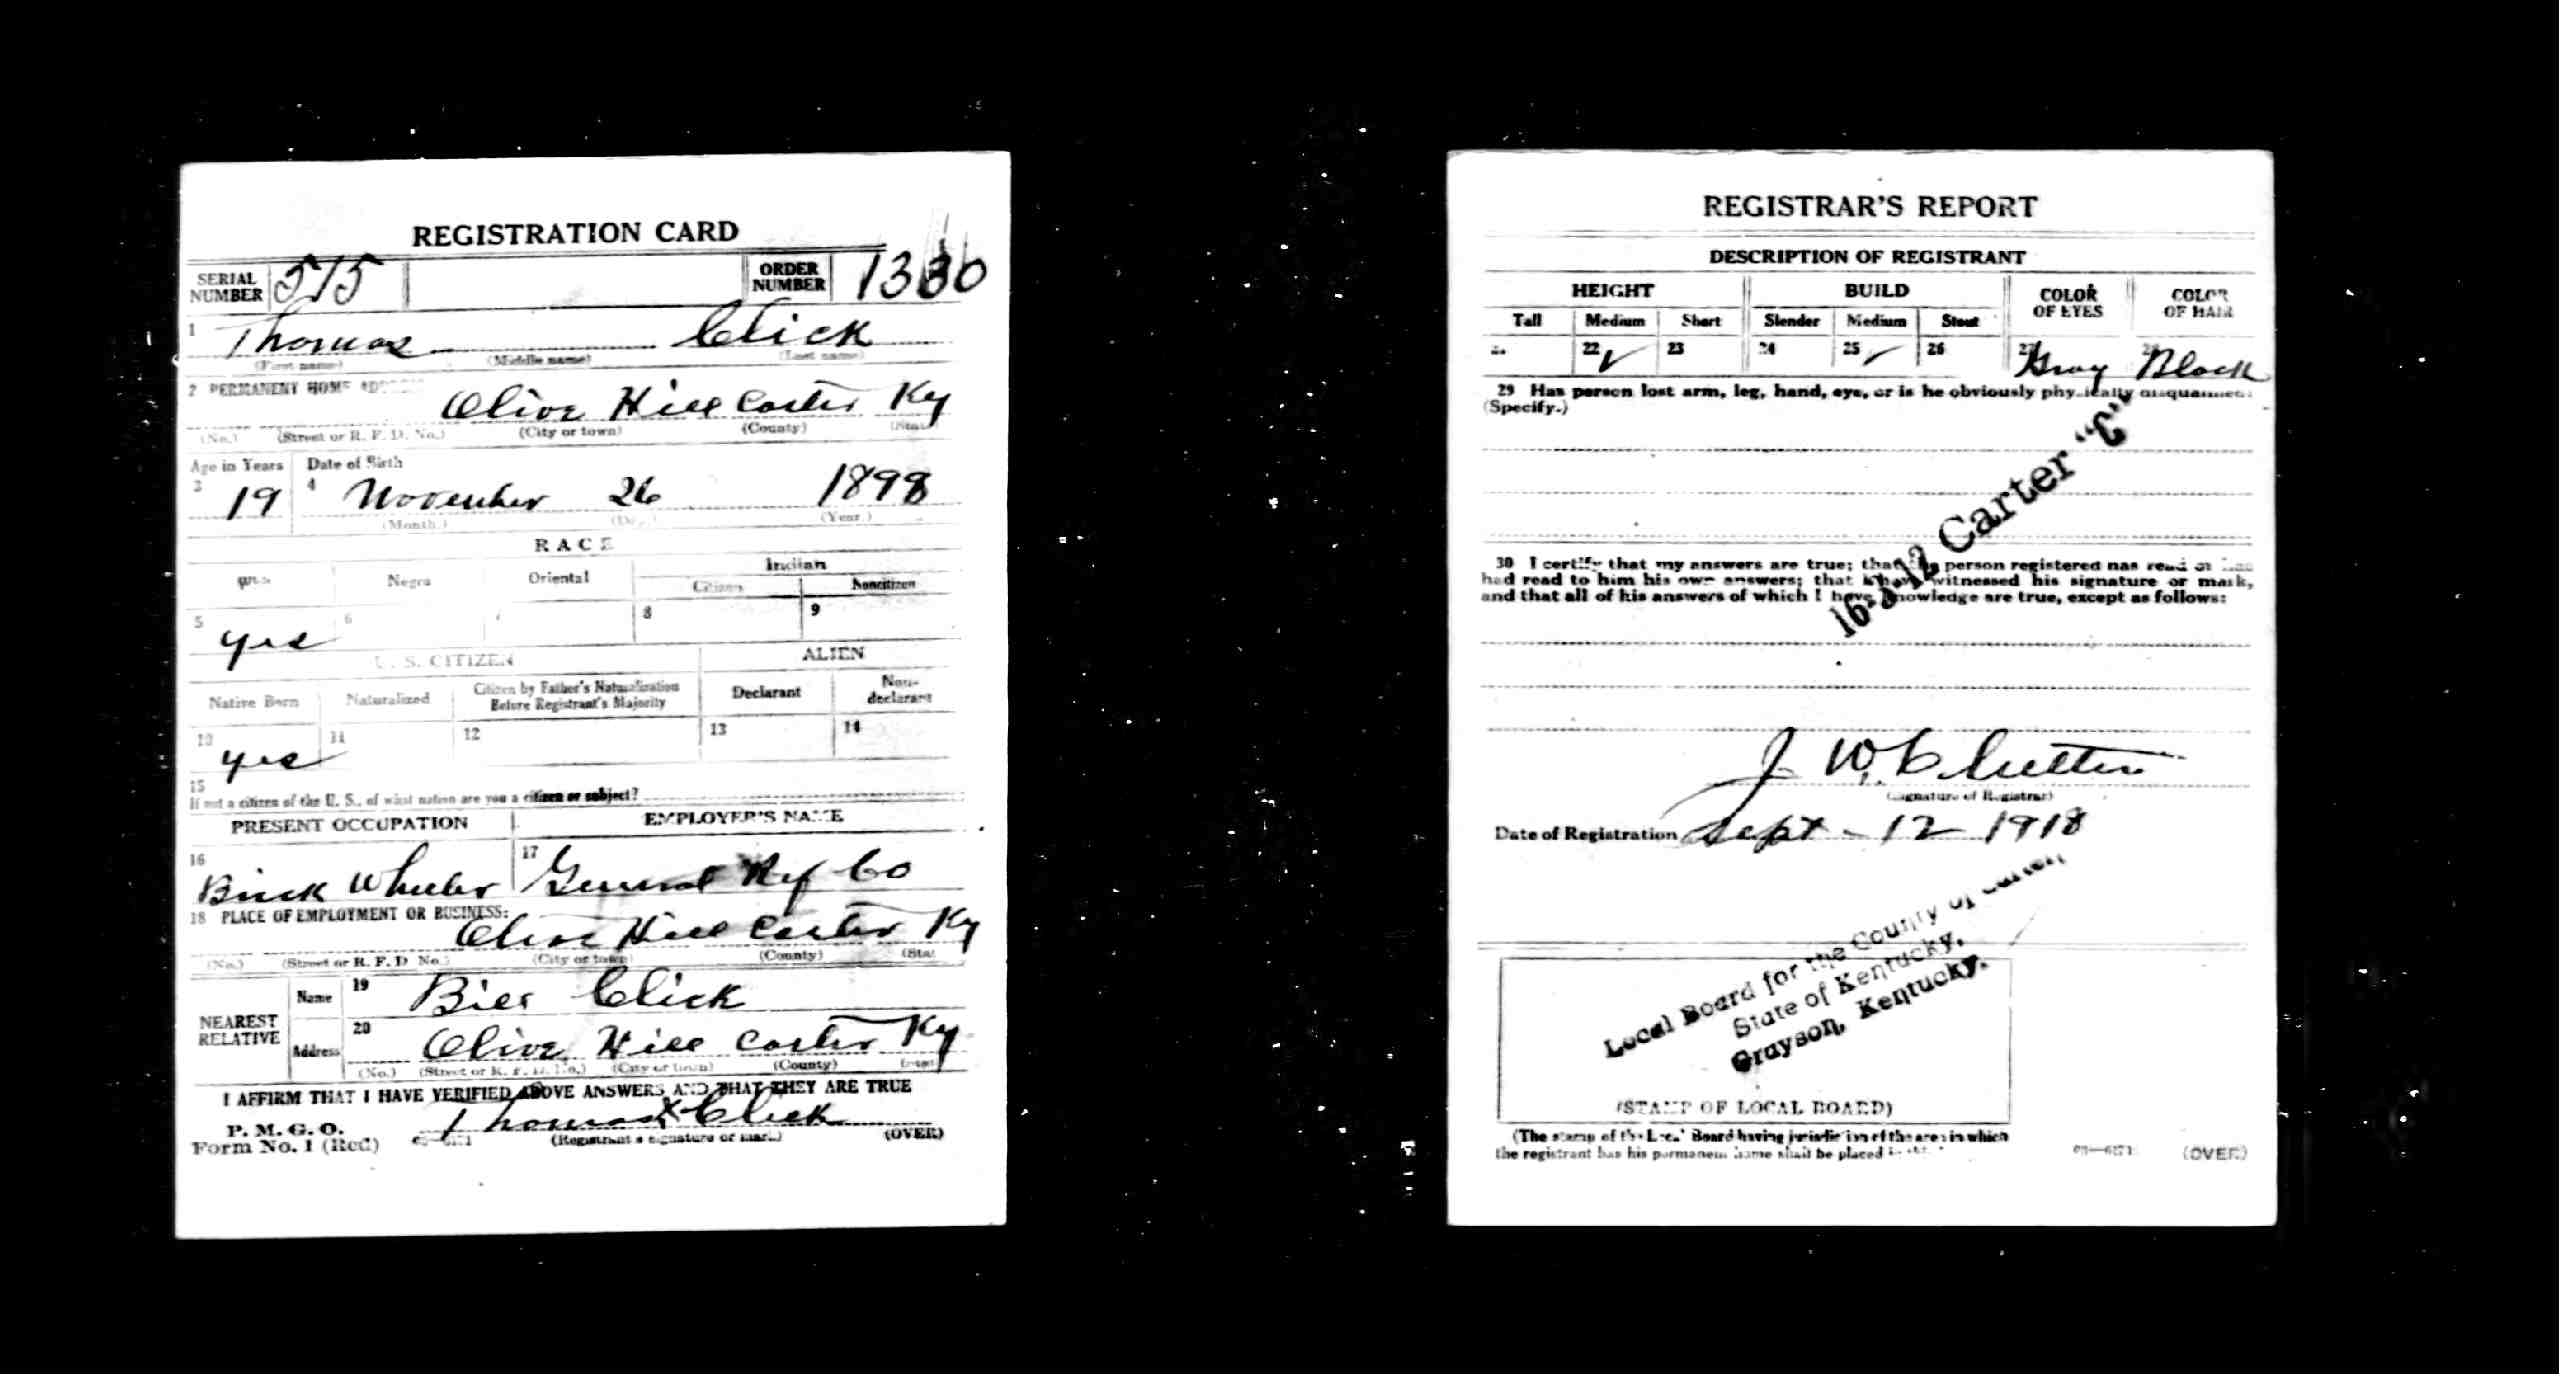 REGISTRATION CARD
SERIAL NUMBER 515 ORDER NUMBER
1 Thomas Click
(First name) (Middle name) (Last name)
2 PERMANENT HOME
Olive Hill Carter Ky
(No.) (Street or R. F. D. No.) (City or town) (County)
Age in Years Date of Birth
3 19 4 November 26 1898
(Month.) (Year.)
RACE
Negro Oriental Indian
Citizen Noncitizen
5 yes 6 7 8 9
U. S. CITIZEN ALIEN
Native Born Naturalized Citizen by Father's Naturalization Before Registrant's Majority Declarant Non-declarant
10 yes 11 12 13 14
15
If not a citizen of the U. S., of what nation are you a citizen or subject?
PRESENT OCCUPATION EMPLOYER'S NAME
16 Brick Wheeler 17 General Rf Co
18 PLACE OF EMPLOYMENT OR BUSINESS:
Olive Hill Carter Ky
(No.) (Street or R. F. D. No.) (City or town) (County)
NEAREST RELATIVE Name 19 Bill Click
Address 20 Olive Hill Carter Ky
(No.) (Street or R. F. D. No.) (City or town) (County)
I AFFIRM THAT I HAVE VERIFIED ABOVE ANSWERS AND THAT THEY ARE TRUE
P. M. G. O.
Form No. 1 (Red) Thomas X Click
(Registrant's signature or mark) (OVER)
REGISTRAR'S REPORT
DESCRIPTION OF REGISTRANT
HEIGHT BUILD COLOR OF EYES COLOR OF HAIR
Tall Medium Short Slender Medium Stout
22 ✓ 23 24 25 ✓ 26 27 Gray Black
29 Has person lost arm, leg, hand, eye, or is he obviously physically disqualified?
(Specify.)
16-3-12 Carter "C"
30 I certify that my answers are true; that the person registered has read or has
had read to him his own answers; that I have witnessed his signature or mark,
and that all of his answers of which I have knowledge are true, except as follows:
J W
(Signature of Registrar)
Date of Registration Sept - 12 1918
Local Board for the County of Carter,
State of Kentucky,
Grayson, Kentucky.
(STAMP OF LOCAL BOARD)
(The stamp of the Local Board having jurisdiction of the area in which
the registrant has his permanent home shall be placed
(OVER)